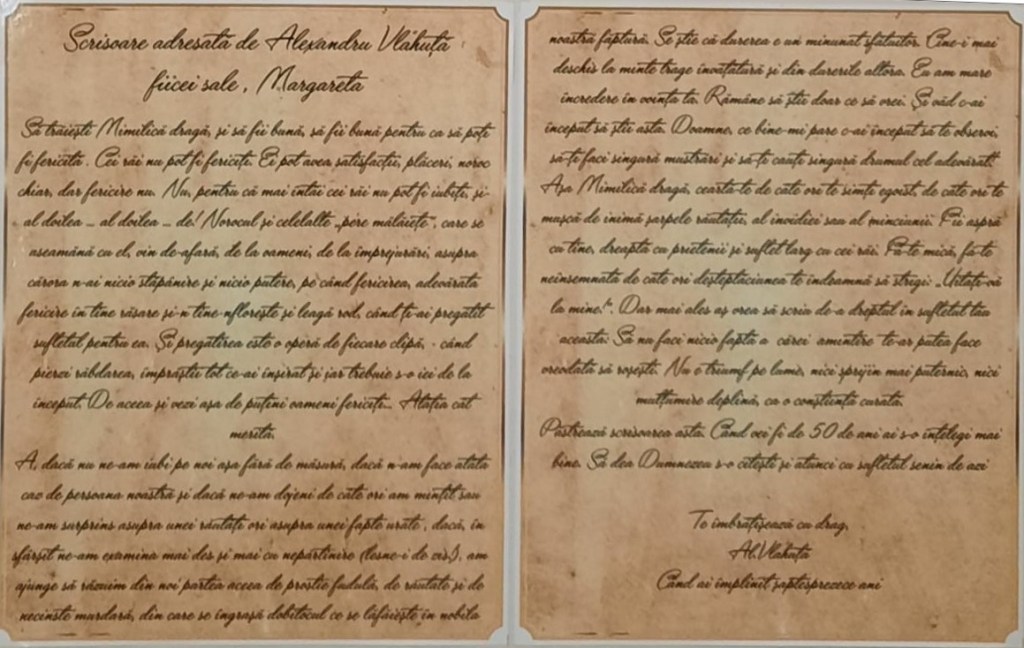 Scrisoare adresată de Alexandru Vlăhuță
fiicei sale, Margareta
Să trăiești Mimilică dragă, și să fii bună, să fii bună pentru ca să poți
fi fericită. Cei răi nu pot fi fericiți. Ei pot avea satisfacții, plăceri, noroc
chiar, dar fericire nu. Nu, pentru că mai întâi cei răi nu pot fi iubiți, și-
al doilea ... al doilea ... de! Norocul și celelalte „pere mălăiețe", care se
aseamănă cu el, vin de-afară, de la oameni, de la împrejurări, asupra
cărora n-ai nicio stăpânire și nicio putere, pe când fericirea, adevărata
fericire în tine răsare și-n tine-nflorește și leagă rod, când ți-ai pregătit
sufletul pentru ea. Și pregătirea este o operă de fiecare clipă, - când
pierzi răbdarea, împrăștii tot ce-ai înșirat și iar trebuie s-o iei de la
început. De aceea și vezi așa de puțini oameni fericiți... Atâția cât
merită.
A, dacă nu ne-am iubi pe noi așa fără de măsură, dacă n-am face atâta
caz de persoana noastră și dacă ne-am dojeni de câte ori am mințit sau
ne-am surprins asupra unei răutăți ori asupra unei fapte urâte, dacă, în
sfârșit ne-am examina mai des și mai cu nepărtinire (lesne-i de zis!), am
ajunge să răzuim din noi partea aceea de prostie fudulă, de răutate și de
necinste murdară, din care se îngrașă dobitocul ce se lăfăiește în nobila
noastră făptură. Se știe că durerea e un minunat sfătuitor. Cine-i mai
deschis la minte trage învățătură și din durerile altora. Eu am mare
încredere în voința ta. Rămâne să știi doar ce să vrei. Și văd c-ai
început să știi asta. Doamne, ce bine-mi pare c-ai început să te observi,
să-ți faci singură mustrări și să-ți cauți singură drumul cel adevărat!
Așa Mimilică dragă, ceartă-te de câte ori te simți egoist de câte ori te
mușcă de inimă șarpele răutății, al invidiei sau al minciunii. Fii aspră
cu tine, dreaptă cu prietenii și suflet larg cu cei răi. Fă-te mică, fă-te
neînsemnată de câte ori deșteptăciunea te îndeamnă să strigi: „Uitați-vă
la mine!". Dar mai ales aș vrea să scriu de-a dreptul în sufletul tău
aceasta: Să nu faci nicio faptă a cărei amintire te-ar putea face
vreodată să roșești. Nu e triumf pe lume, nici sprijin mai puternic, nici
mulțumire deplină, ca o conștiință curată.
Păstrează scrisoarea asta. Când vei fi de 50 de ani ai s-o înțelegi mai
bine. Să dea Dumnezeu s-o citești și atunci cu sufletul senin de azi
Te îmbrățișează cu drag,
Al.Vlahuță
Când ai împlinit șaptesprezece ani